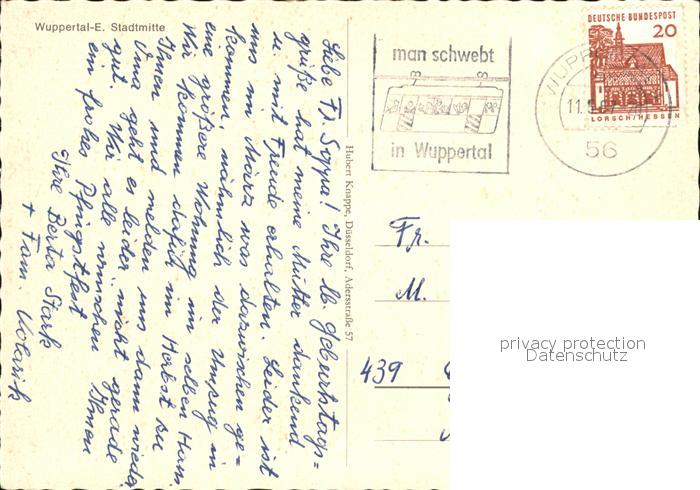 Wuppertal-E. Stadtmitte
Liebe Fr. Soppa! Ihre lb. Geburtstags=
grüße hat meine Mutter dankend
u. mit Freude erhalten. Leider ist
uns im März was dazwischen ge=
kommen, nämlich der Umzug in
eine größere Wohnung im selben Haus
Wir kommen dafür im Herbst zu
Ihnen und melden uns dann wieder
Oma geht es leider nicht gerade
gut. Wir alle wünschen Ihnen
ein frohes Pfingstfest
Ihre Berta Stark
+ Fam. Kolarik
Hubert Knappe, Düsseldorf, Adersstraße 57
man schwebt
in Wuppertal
WUPP
11.
56
DEUTSCHE BUNDESPOST
20
LORSCH/HESSEN
Fr.
M.
439
privacy protection
Datenschutz